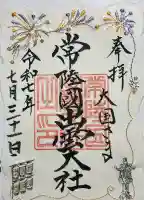 奉拝
大国まつり
常陸國出雲大社
令和七年
七月二十一日